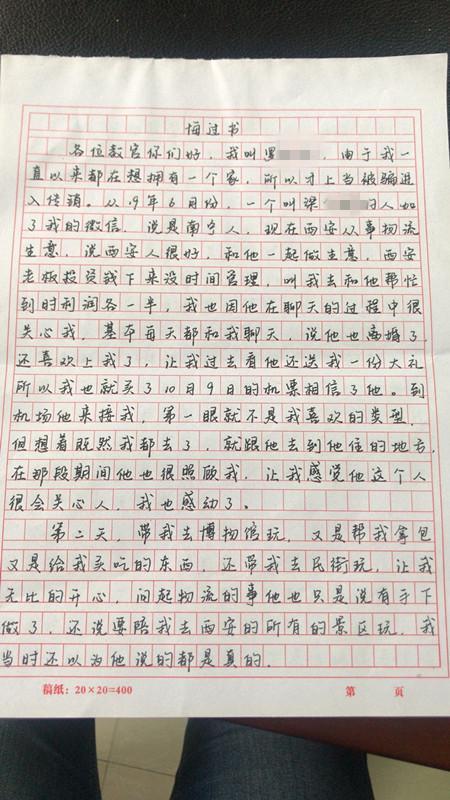 悔过书
各位教官你们好，我叫覃 ，由于我一
直以来都在想拥有一个家，所以才上当被骗进
入传销。从19年6月份，一个叫梁 的人加
了我的微信，说是南宁人，现在西安从事物流
生意，说西安人很好，和他一起做生意，西安
老板投资钱下来没时间管理，叫我去和他帮忙
到时利润各一半，我也因他在聊天的过程中很
关心我，基本每天都和我聊天，说他也离婚了，
还喜欢上我了，让我过去看他还送我一份大礼
所以我也就买了10月9日的机票相信了他。到
机场他来接我，第一眼就不是我喜欢的类型，
但想着既然我都去了，就跟他去到他住的地方，
在那段期间他也很照顾我，让我感觉他这个人
很会关心人，我也感动了。
第二天，带我去博物馆玩，又是帮我拿包
又是给我买吃的东西，还带我去民街玩，让我
无比的开心，问起物流的事他也只是说有手下
做了，还说要陪我去西安的所有的景区玩，我
当时还以为他说的都是真的.
稿纸：20×20=400 第 页